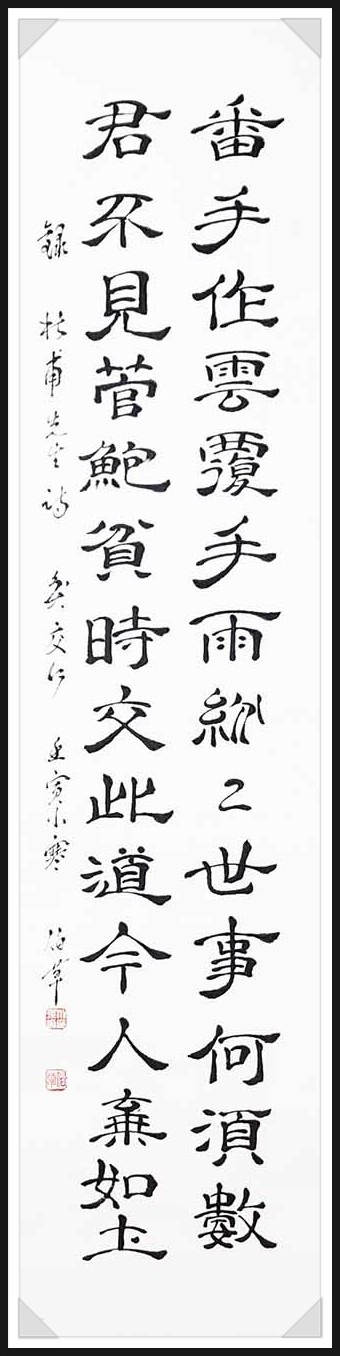 番手作雲覆手雨紛〻世事何須數
君不見菅鮑貧時交此道今人棄如土
録杜甫先生詩貧交行壬寅小寒